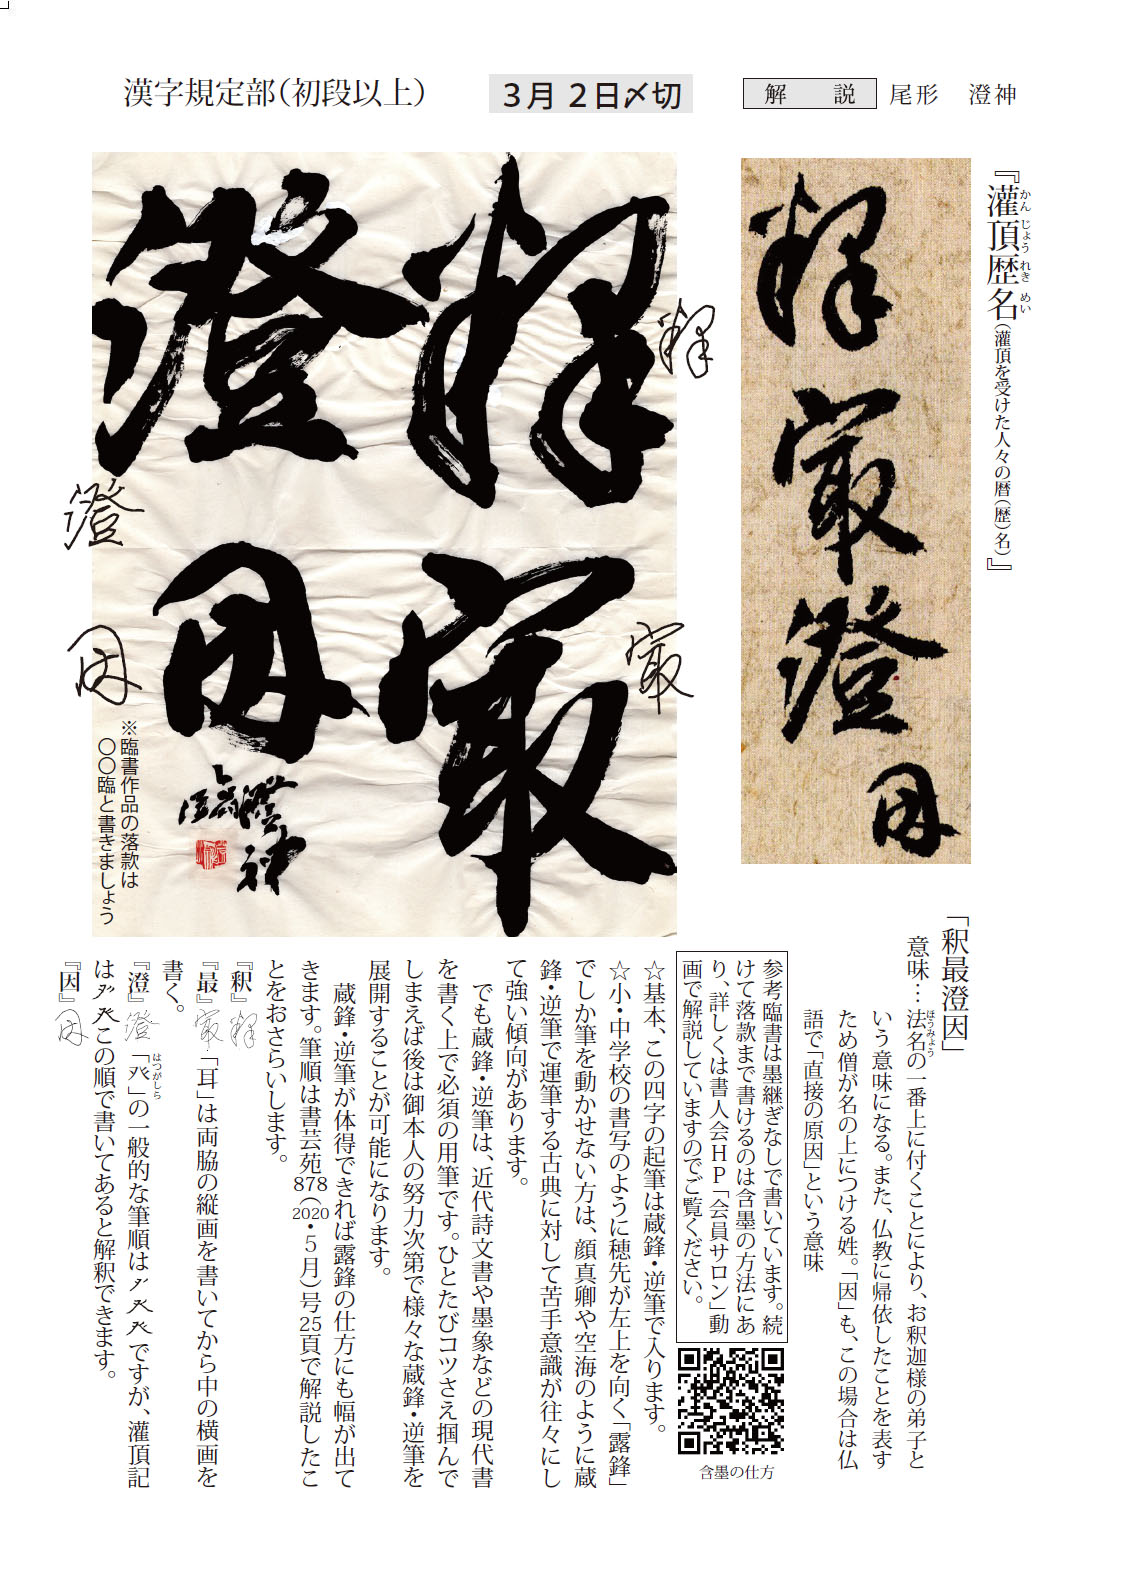 漢字規定部（初段以上）
３月２日〆切
解　説
尾形　澄神
『灌頂歴名（灌頂を受けた人々の暦（歴）名）』
かんじょうれきめい
釋
最
澄
因
釋
最
澄
因
澄神臨
釋
最
澄
因
※臨書作品の落款は
〇〇臨と書きましょう
「釈最澄因」
意味…法名の一番上に付くことにより、お釈迦様の弟子と
ほうみょう
いう意味になる。また、仏教に帰依したことを表す
ため僧が名の上につける姓。「因」も、この場合は仏
語で「直接の原因」という意味
参考臨書は墨継ぎなしで書いています。続
けて落款まで書けるのは含墨の方法にあ
り、詳しくは書人会ＨＰ「会員サロン」動
画で解説していますのでご覧ください。
含墨の仕方
☆基本、この四字の起筆は蔵鋒・逆筆で入ります。
☆小・中学校の書写のように穂先が左上を向く「露鋒」
でしか筆を動かせない方は、顔真卿や空海のように蔵
鋒・逆筆で運筆する古典に対して苦手意識が往々にし
て強い傾向があります。
でも蔵鋒・逆筆は、近代詩文書や墨象などの現代書
を書く上で必須の用筆です。ひとたびコツさえ掴んで
しまえば後は御本人の努力次第で様々な蔵鋒・逆筆を
展開することが可能になります。
蔵鋒・逆筆が体得できれば露鋒の仕方にも幅が出て
きます。筆順は書芸苑878（2020・５月）号25頁で解説したこ
とをおさらいします。
『釈』釋
『最』最「耳」は両脇の縦画を書いてから中の横画を
書く。
『澄』澄「癶」の一般的な筆順は
はつがしら
ですが、灌頂記
は
この順で書いてあると解釈できます。
『因』因